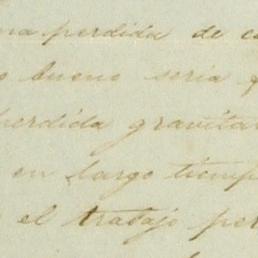 una perdida de co
o bueno seria q
perdida gravita
en largo tiemp
el trabajo per